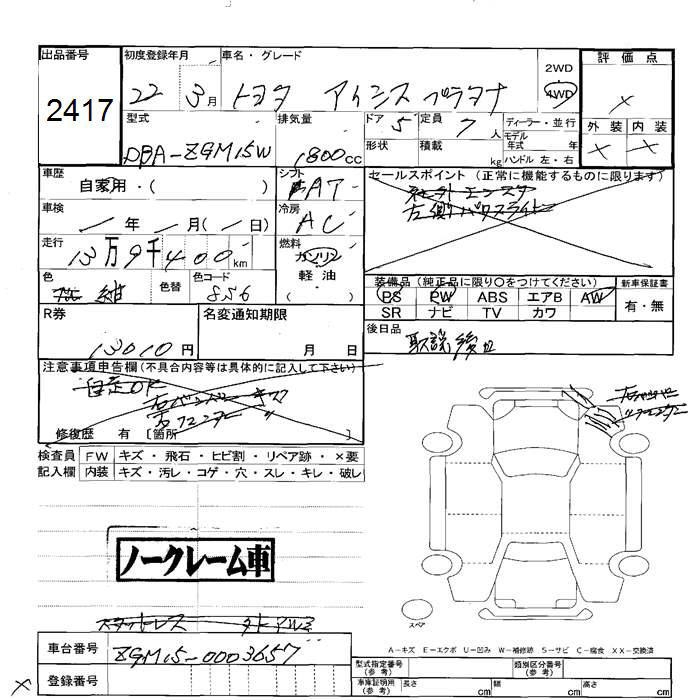 出品番号 初度登録年月 車名・グレード 2WD 評価点
2417 22 3月 トヨタ アイシス プラタナ 4WD ×
型式 排気量 ドア 5 定員 7人 ディーラー・並行 外装 内装
DBA-ZGM15W 1800cc 形状 積載 kg モデル年式 年 × ×
ハンドル 左・右
車歴 シフト セールスポイント (正常に機能するものに限ります)
自家用・( ) FAT 社外エンスタ
車検 冷房 左側パワスライド
／年 ／月(／日) AC
走行 燃料
13万9千400km ガソリン
軽油
・( )
色 色替 色コード 装備品 (純正品に限り○をつけてください) 新車保証書
紺 8S6 PS PW ABS エアB AW 有・無
SR ナビ TV カワ
R券 名変通知期限 後日品
13010円 月 日 取説後日
注意事項申告欄 (不具合内容等は具体的に記入して下さい)
自走OK
右バンパー キズ
右フェンダー 〃
修復歴 有 〔箇所 〕
検査員 FW キズ・飛石・ヒビ割・リペア跡・×要
記入欄 内装 キズ・汚レ・コゲ・穴・スレ・キレ・破レ
ノークレーム車
スペア
A-キズ E-エクボ U-凹み W-補修跡 S-サビ C-腐食 XX-交換済
車台番号 ZGM15-0003657
登録番号
×
型式指定番号(参考) 類別区分番号(参考)
車庫証明用(参考) 長さ cm 幅 cm 高さ cm